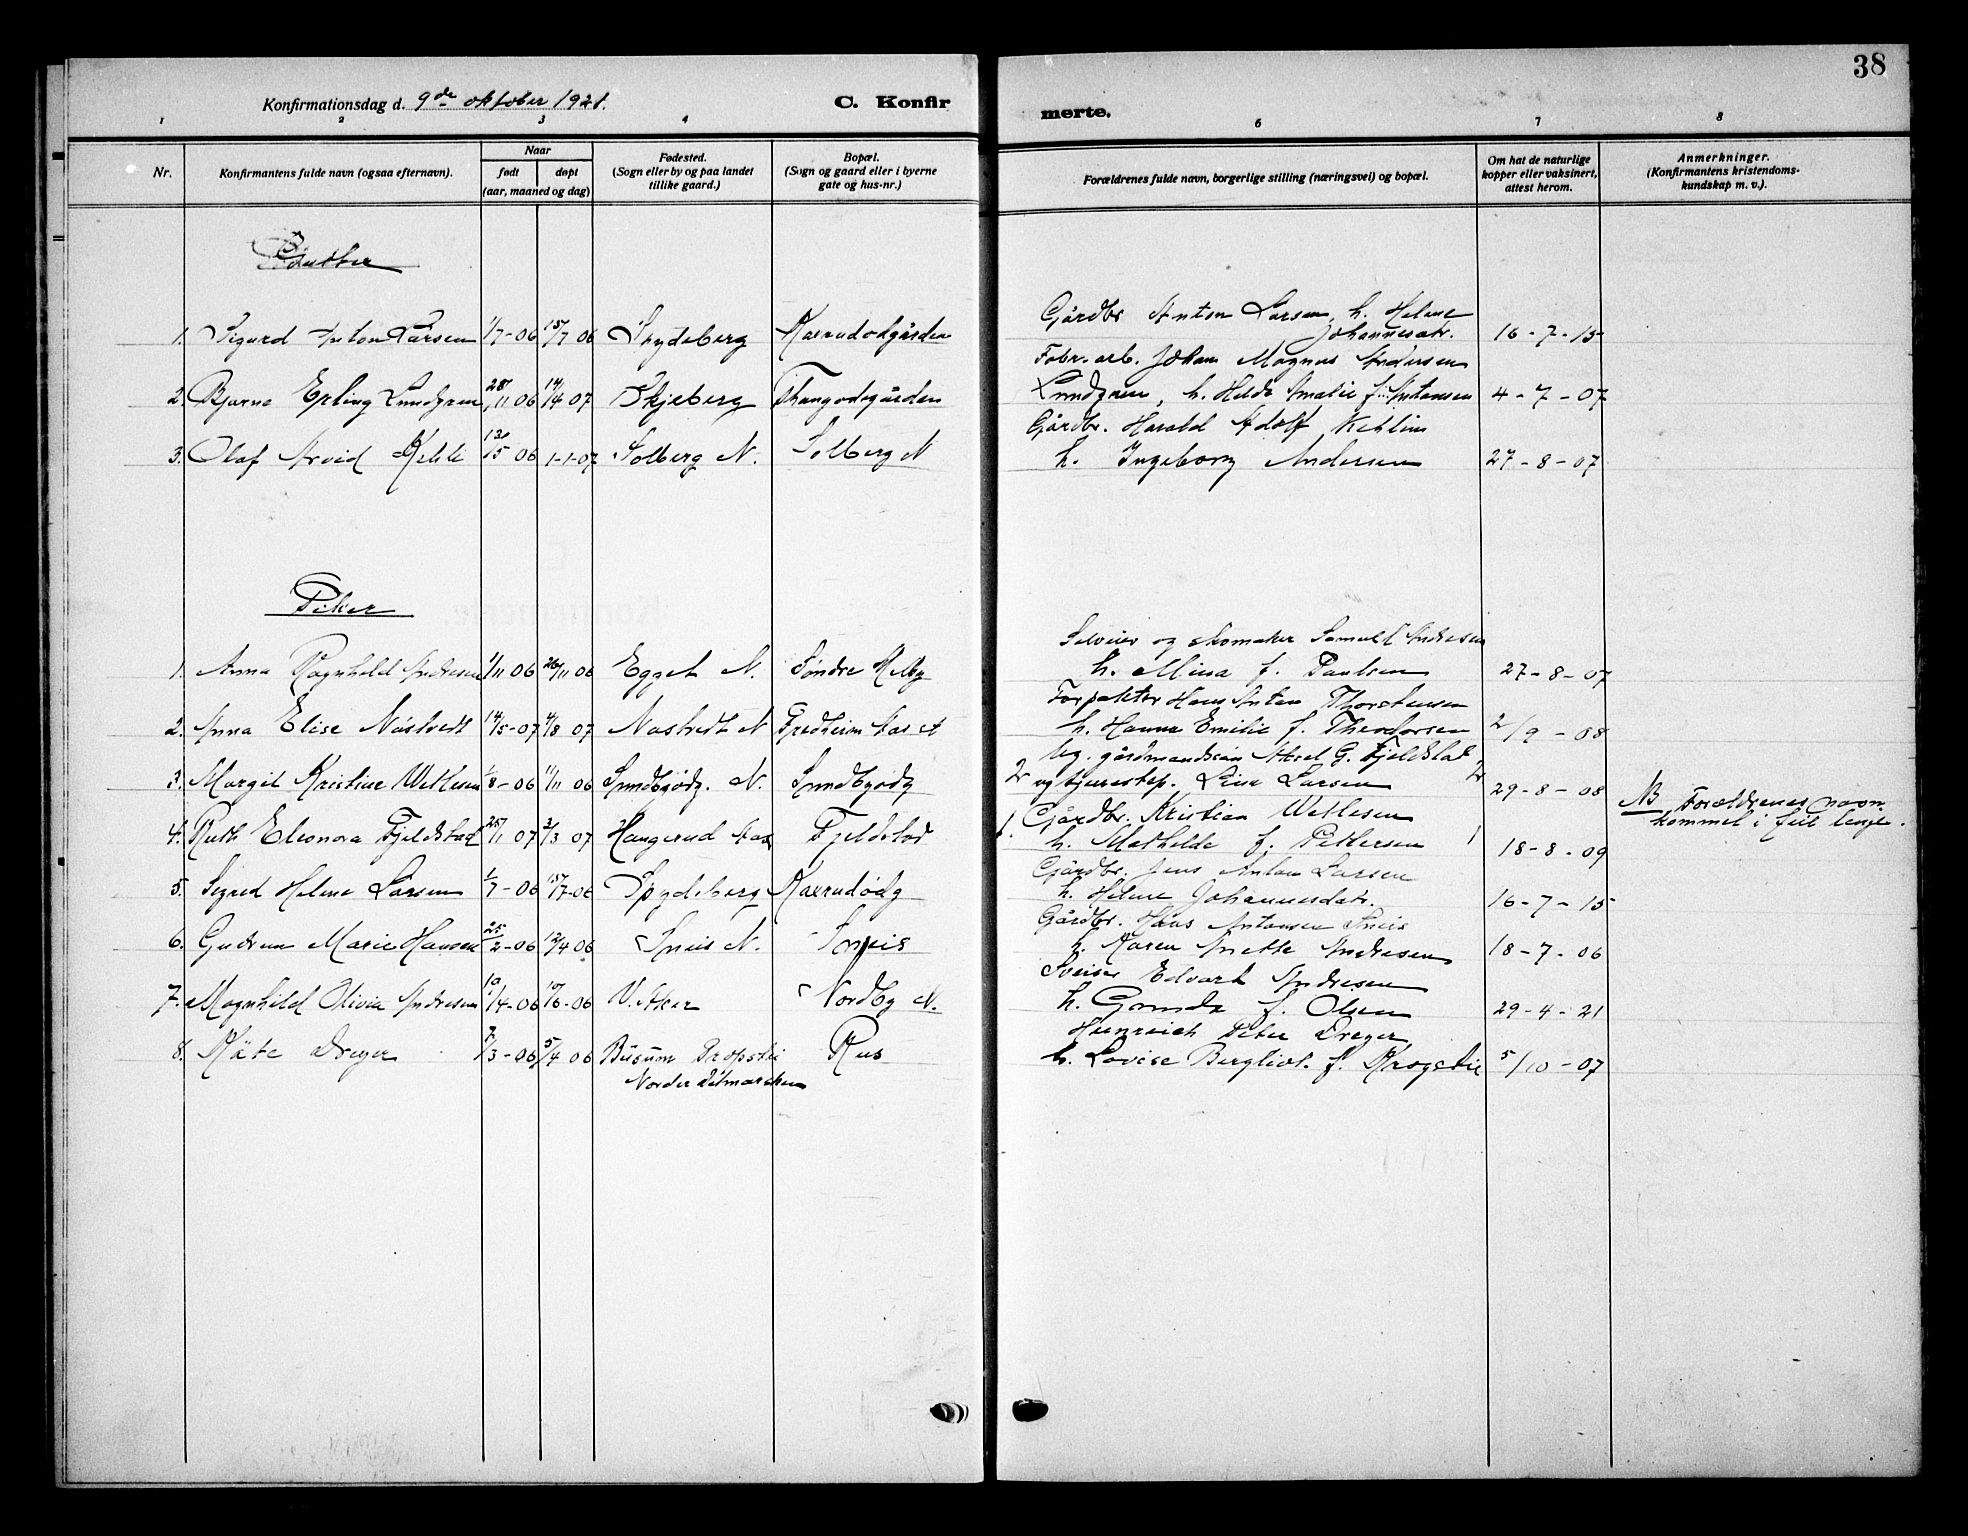 38
Konfirmationsdag d. 9de oktober 1921.
C. Konfir
merte.
1 2 3 4 6 7 8
Nr.
Konfirmantens fulde navn (ogsaa efternavn).
Naar
født døpt
(aar, maaned og dag)
Fødested.
(Sogn eller by og paa landet
tillike gaard.)
Bopæl.
(Sogn og gaard eller i byerne
gate og hus-nr.)
Forældrenes fulde navn, borgerlige stilling (næringsvei) og bopæl.
Om hat de naturlige
kopper eller vaksinert,
attest herom.
Anmerkninger.
(Konfirmantens kristendoms-
kundskap m. v.).
Gutter
Gårdbr Anton Larsen, h. Helene
1. Sigurd Anton Larsen 1/7-06 15/7 06 Spydeberg Kaxrudødgården Johannesdtr. 16-7-15
Fabr. arb. Johan Magnus Andersen
2. Bjarne Erling Lundgren 28/11 06 14/4 07 Skjeberg Lundgren, h. Hilda Amalie f. Antonsen 4-7-07
Gårdbr. Harald Adolf
3. Olaf Arvid 13/5 06 1-1-07 Solberg N. Solberg N h. Ingeborg Andersen 27-8-07
Piker
Selveier og skomaker Samuel Andresen
1. Anna Ragnhild Andresen 1/11 06 26/11 06 Egget N. Søndre h. Mina f. Paulsen 27-8-07
Forpakter Hans Anton Thorstensen
2. Anna Elise Nøstvedt 14/5-07 4/8 07 Nøstvedt N Fredheim Aas h. Hanna Emilie f. Theodorsen 2/9-08
Ug. gårdmandssøn Aksel G. Fjeldstad
3. Margit Kristine Wetlesen 1/8-06 11/11 06 Sundbyødg. N. Sundbyødg 2 og tjenestep. Line Larsen 2 29-8-08
NB Forældrenes navn
4. Ruth Eleonora Fjeldstad 25/11 07 3/3 07 Haugerud Aas Fjeldstad 1. Gårdbr. Kristian Wetlesen
kommet i feil linje.
h. Mathilde f. Pettersen 1 18-8-09
Gårdbr. Jens Anton Larsen
5. Sigred Helene Larsen 1/7-06 15/7-06 Spydeberg Kaxrudødg h. Helene Johannesdatr. 16-7-15
Gårdbr. Hans Antonsen Sneis
6. Gudrun Marie Hansen 25/2-06 12/4 06 Sneis N. Sneis h. Karen Anette Andresen 18-7-06
Sveiser Edvart Andresen
7. Magnhild Olivia Andresen 10/4-06 10/6-06 V. Aker Nordby N. h. Gunda f. Olsen 29-4-21
Heinreich Peter Dreyer
8. Käte Dreyer 7/3-06 5/4 06 Büsum Propstei Rus h. Lovise Bergliot f. 5/10-07
Norder Ditmarschen